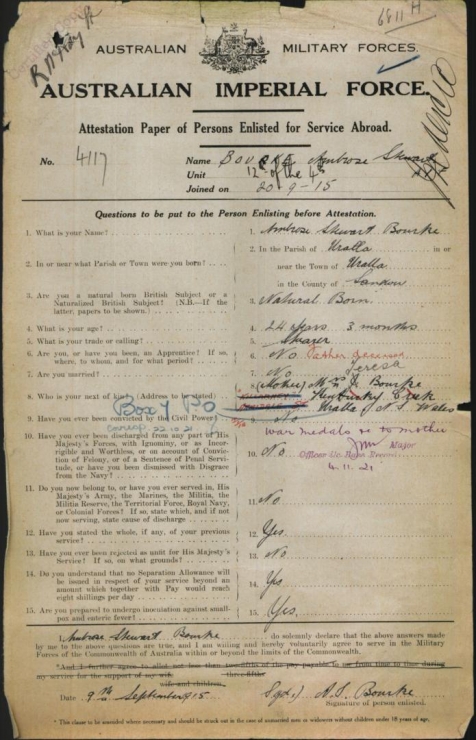 6811 H
AUSTRALIAN MILITARY FORCES.
AUSTRALIAN IMPERIAL FORCE.
Attestation Paper of Persons Enlisted for Service Abroad.
No. 4117 Name Bourke Ambrose Stewart
Unit 12th of the 4th
Joined on 20-9-15
Questions to be put to the Person Enlisting before Attestation.
1. What is your Name? 1. Ambrose Stewart Bourke
2. In or near what Parish or Town were you born? 2. In the Parish of Uralla in or
near the Town of Uralla
in the County of Sandon
3. Are you a natural born British Subject or a
Naturalized British Subject? (N.B.—If the
latter, papers to be shown.) 3. Natural Born.
4. What is your age? 4. 24 years 3 months
5. What is your trade or calling? 5. Shearer
6. Are you, or have you been, an Apprentice? If so,
where, to whom, and for what period? 6. No Father deceased
7. Are you married? 7. No Teresa
8. Who is your next of kin? (Address to be stated) 8. (Mother) Mrs J. Bourke
Box 4 P O
Uralla N. S. Wales
9. Have you ever been convicted by the Civil Power? 9. No
22.10.21
war medals to mother
10. Have you ever been discharged from any part of His
Majesty's Forces, with Ignominy, or as Incor-
rigible and Worthless, or on account of Convic-
tion of Felony, or of a Sentence of Penal Servi-
tude, or have you been dismissed with Disgrace
from the Navy? 10. No.
Major
Officer i/c. Base Records
4.11.21
11. Do you now belong to, or have you ever served in, His
Majesty's Army, the Marines, the Militia, the
Militia Reserve, the Territorial Force, Royal Navy,
or Colonial Forces? If so, state which, and if not
now serving, state cause of discharge 11. No
12. Have you stated the whole, if any, of your previous
service? 12. Yes.
13. Have you ever been rejected as unfit for His Majesty's
Service? If so, on what grounds? 13. No
14. Do you understand that no Separation Allowance will
be issued in respect of your service beyond an
amount which together with Pay would reach
eight shillings per day 14. Yes
15. Are you prepared to undergo inoculation against small-
pox and enteric fever? 15. Yes.
I, Ambrose Stewart Bourke, do solemnly declare that the above answers made
by me to the above questions are true, and I am willing and hereby voluntarily agree to serve in the Military
Forces of the Commonwealth of Australia within or beyond the limits of the Commonwealth.
*And I further agree to allot not less than two-fifths of the pay payable to me from time to time during
three-fifths
my service for the support of my wife
wife and children.
Date 9th September 915 Sgd.) A. S. Bourke
Signature of person enlisted.
* This clause to be amended where necessary and should be struck out in the case of unmarried men or widowers without children under 18 years of age.